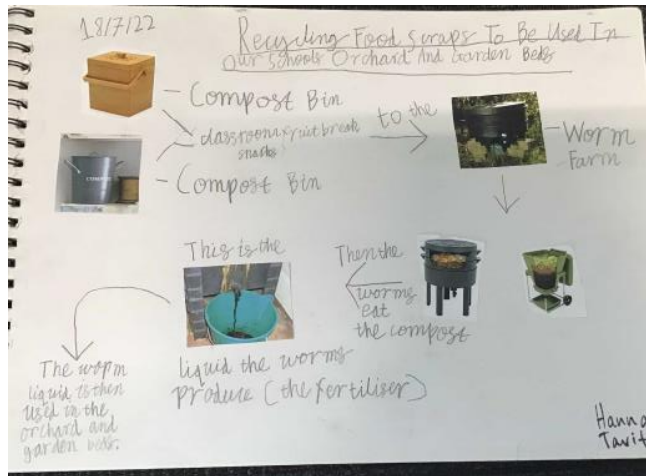 18/7/22
Recycling Food Scraps To Be Used In
Our Schools Orchard And Garden Beds
Compost Bin
classroom fruit break
snacks
Compost Bin
to the
Worm
Farm
Then the
worms
eat
the compost
This is the
liquid the worms
produce (the fertiliser)
The worm
liquid is then
used in the
orchard and
garden beds.
Hanna